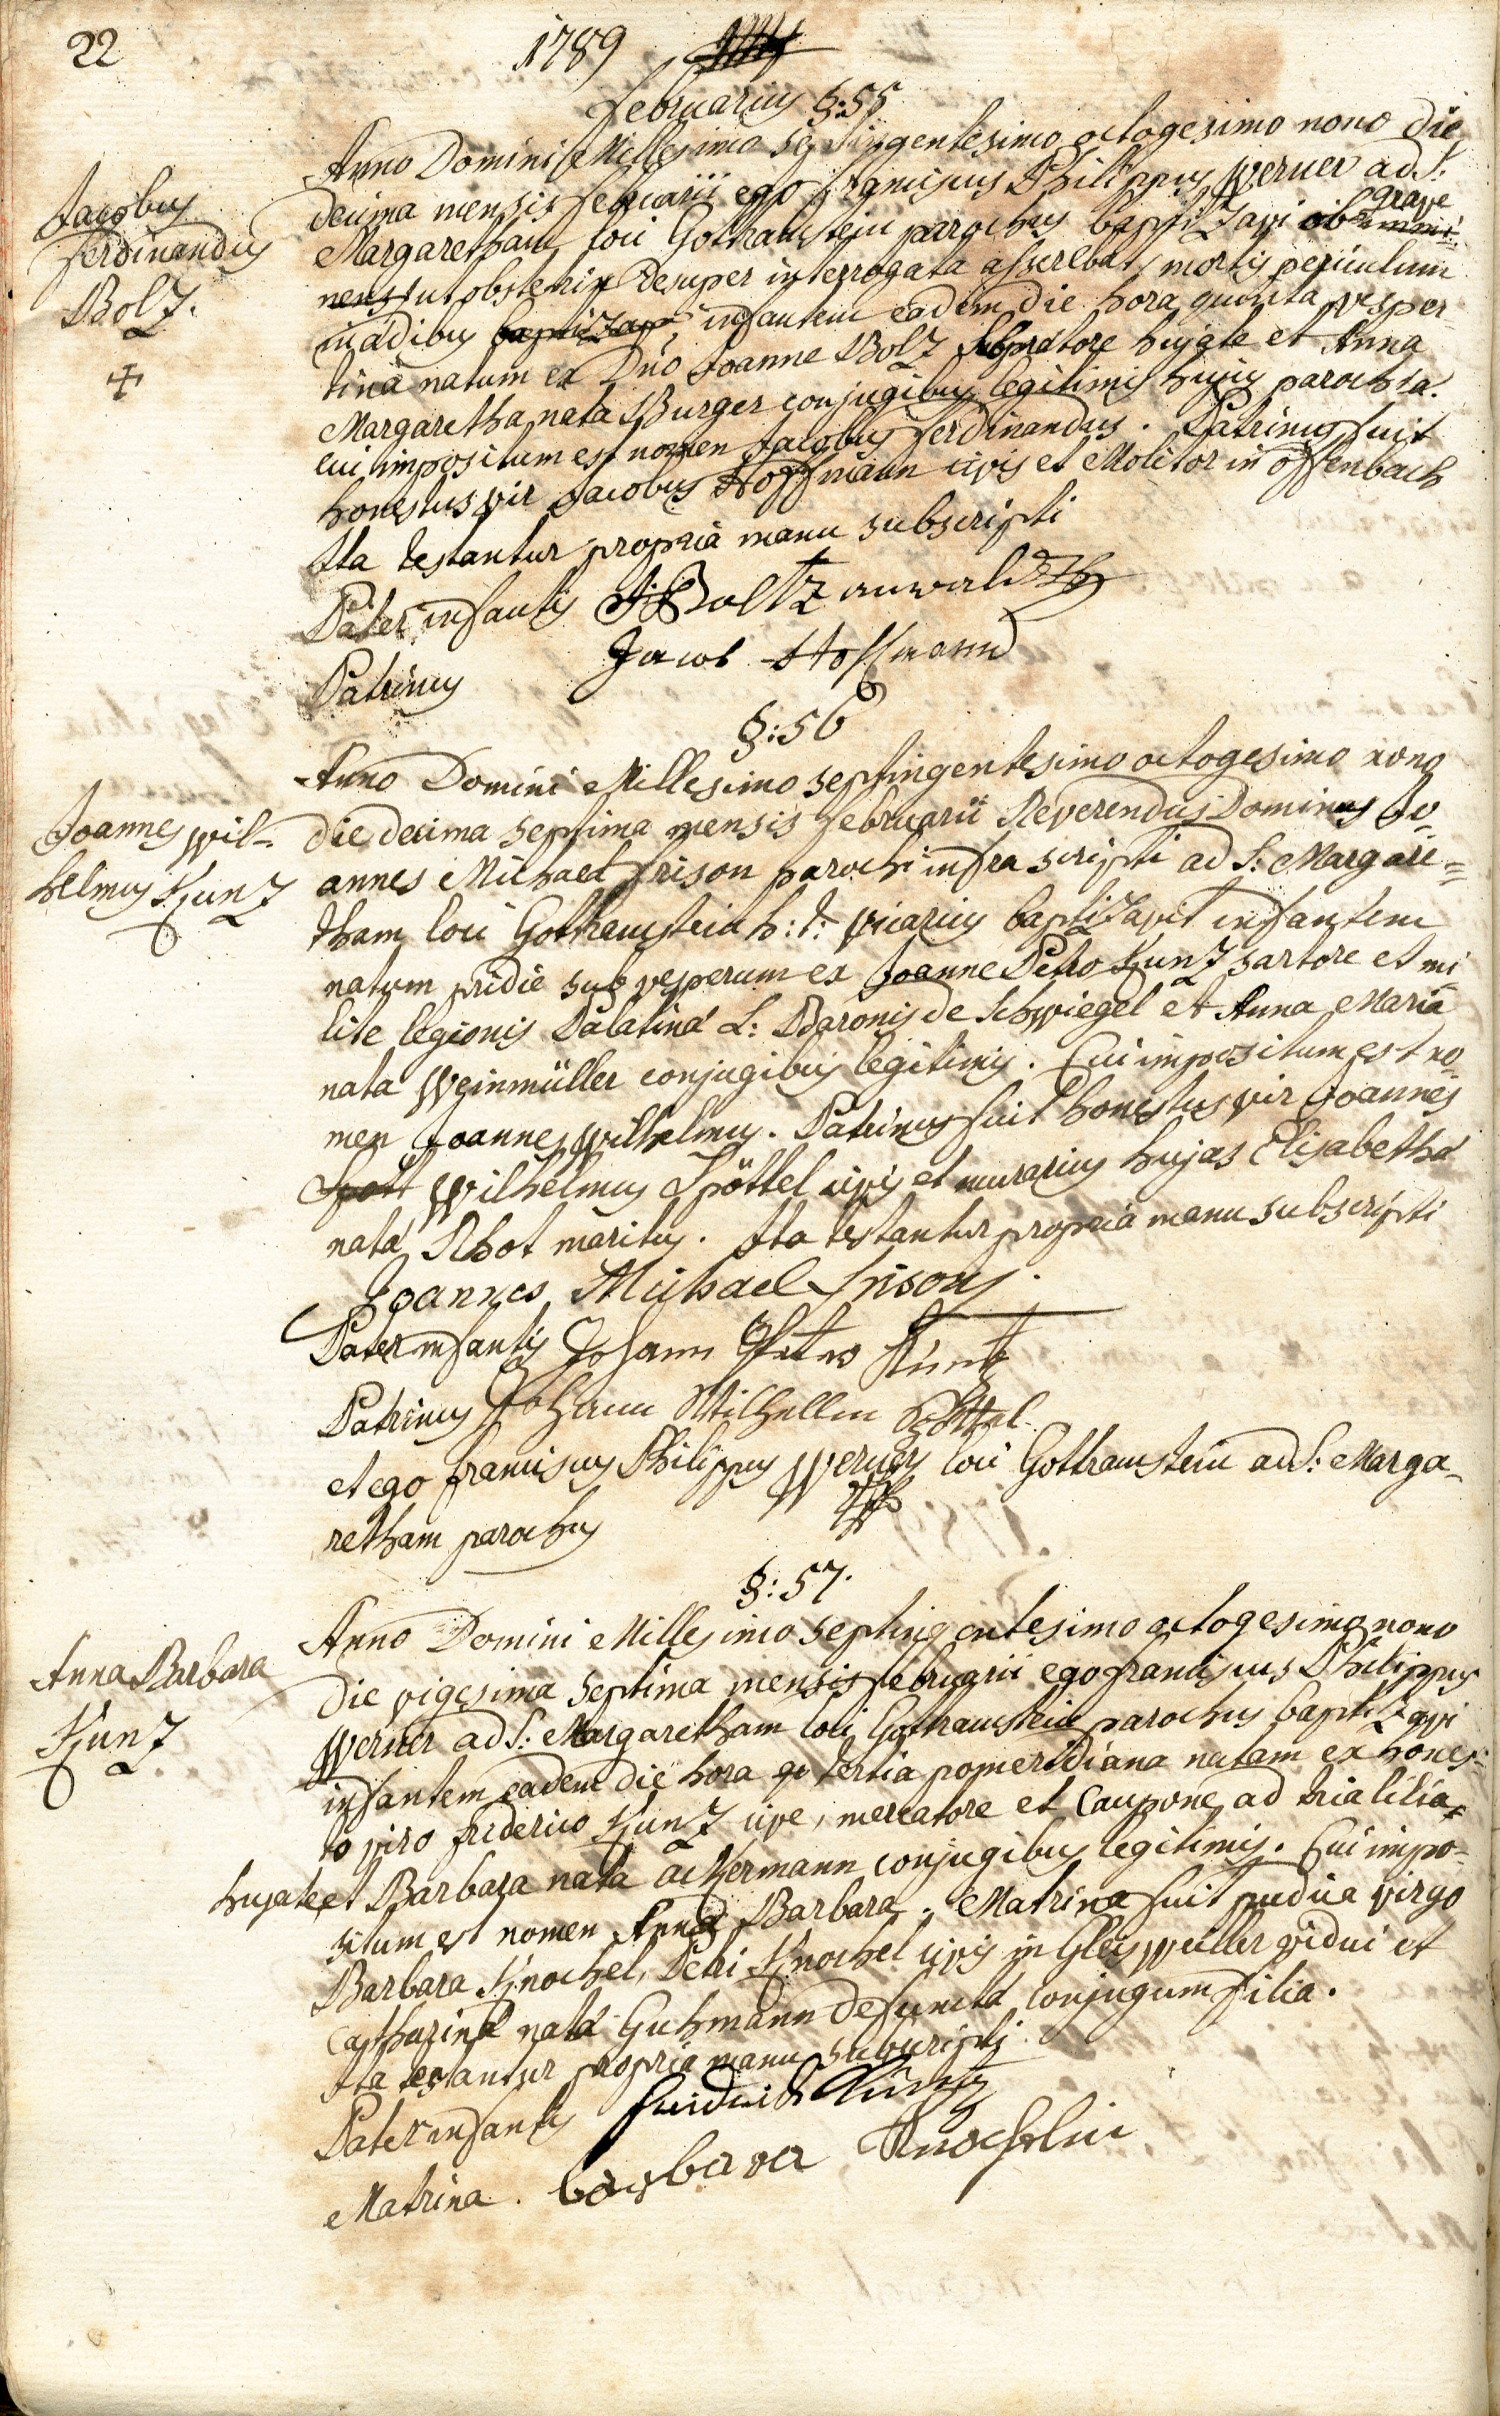 22
1789
Februarius §:55
Jacobus
Ferdinandus
Bolz.
Anno Domini Millesimo septingentesimo octogesimo nono die
decima mensis februarii ego franciscus Philippus Werner ad S:
Margaretham loci Gothramstein parochus baptizavi ob grave immi-
nens ut obstetrix desuper interrogata asserebat, mortis periculum
in ædibus baptizavi, infantem eadem die hora quinta vesper-
tinâ natum ex Dno Joanne Bolz hujate et Anna
Margaretha nata Burger conjugibus legitimis hujus parochiæ.
cui impositum est nomen Jacobus Ferdinandus. Patrinus fuit
honestus vir Jacobus Hoffmann civis et Molitor in Offenbach
Ita testantur propriâ manu subscripti
Pater infantis J: Boltz anwaldt
Patrinus Jacob Hoffmann
§:56
Joannes Wil-
helmus Kunz
Anno Domini Millesimo septingentesimo octogesimo nono
die decima septima mensis februarii Reverendus Dominus Jo-
annes Michael frison parochi infra scripti ad S: Margare-
tham loci Gothramstein h: t: vicarius baptizavit infantem
natum pridie sub vesperum ex Joanne Petro Kunz sartore et mi-
lite legionis Palatinæ L: Baronis de Schwiegel et Anna Maria
nata Weinmüller conjugibus legitimis. Cui impositum est no-
men Joannes Wilhelmus. Patrinus fuit honestus vir Joannes
Spött Wilhelmus Spöttel civis et murarius hujas Elisabethæ
natæ Rhot maritus. Ita testantur propriâ manu subscripti
Joannes Michael Frison.
Pater infantis Johann Peter Kuntz
Patrinus Johann Wilhellm Spöttel
et ego franciscus Philippus Werner loci Gothramstein ad S: Marga-
retham parochus
§:57.
Anna Barbara
Kunz
Anno Domini Millesimo septingentesimo octogesimo nono
die vigesima septima mensis februarii ego franciscus Philippus
Werner ad S: Margaretham loci Gothramstein parochus baptizavi
infantem eadem die hora qu tertia pomeridiana natam ex hones-
to viro friderico Kunz cive, mercatore et Caupone ad tria lilia
hujate et Barbara nata ackermann conjugibus legitimis. Cui impo-
situm est nomen Anna Barbara. Matrina fuit pudica virgo
Barbara Knochel, Petri Knochel civis in Gleisweiller vidui et
Catharinæ natæ Guhmann defunctæ conjugum filia.
Ita testantur propriâ manu subscripti.
Pater infantis friedrich Kuntz
Matrina. barbara Knochelin